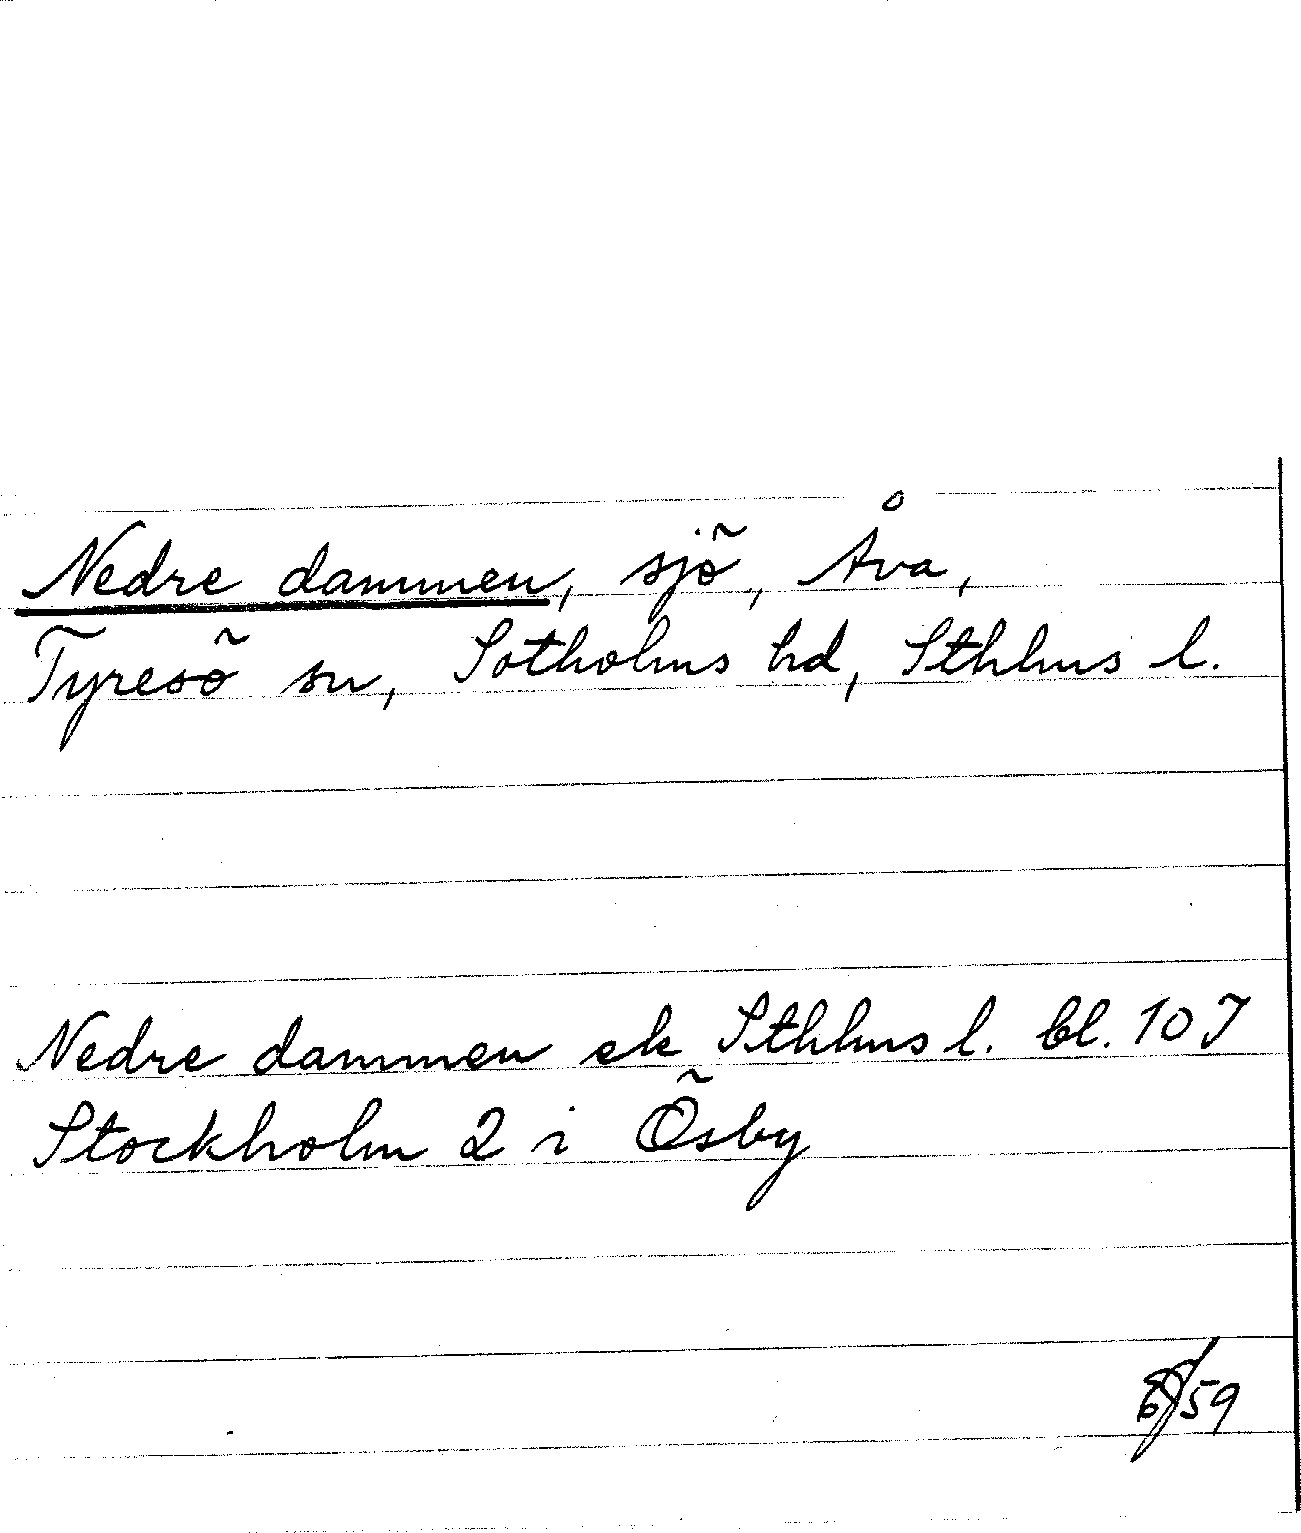 Nedre dammen, sjö, Åva,
Tyresö sn, Sotholms hd, Sthlms l.
Nedre dammen ek Sthlms l. bl. 10 J
Stockholm 2 i Ösby
/59